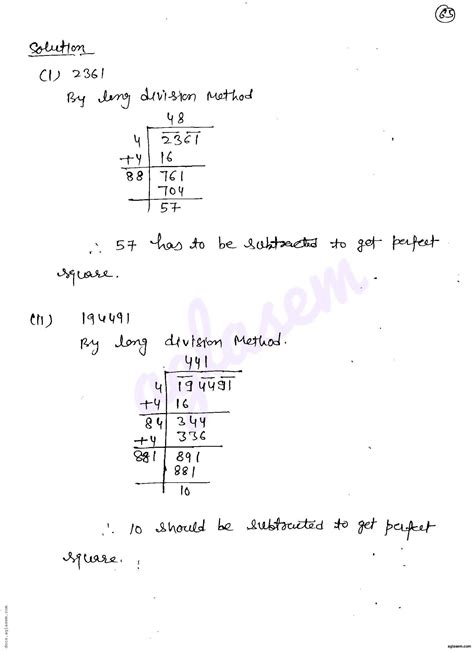 65
Solution
(I) 2361
By long division Method
48
4 2361
+4 16
88 761
704
57
∴ 57 has to be subtracted to get perfect
square.
(II) 194491
By long division Method.
441
4 194491
+4 16
84 344
+4 336
881 891
881
10
∴ 10 should be subtracted to get perfect
square.
aglasem
docs.aglasem.com
aglasem.com